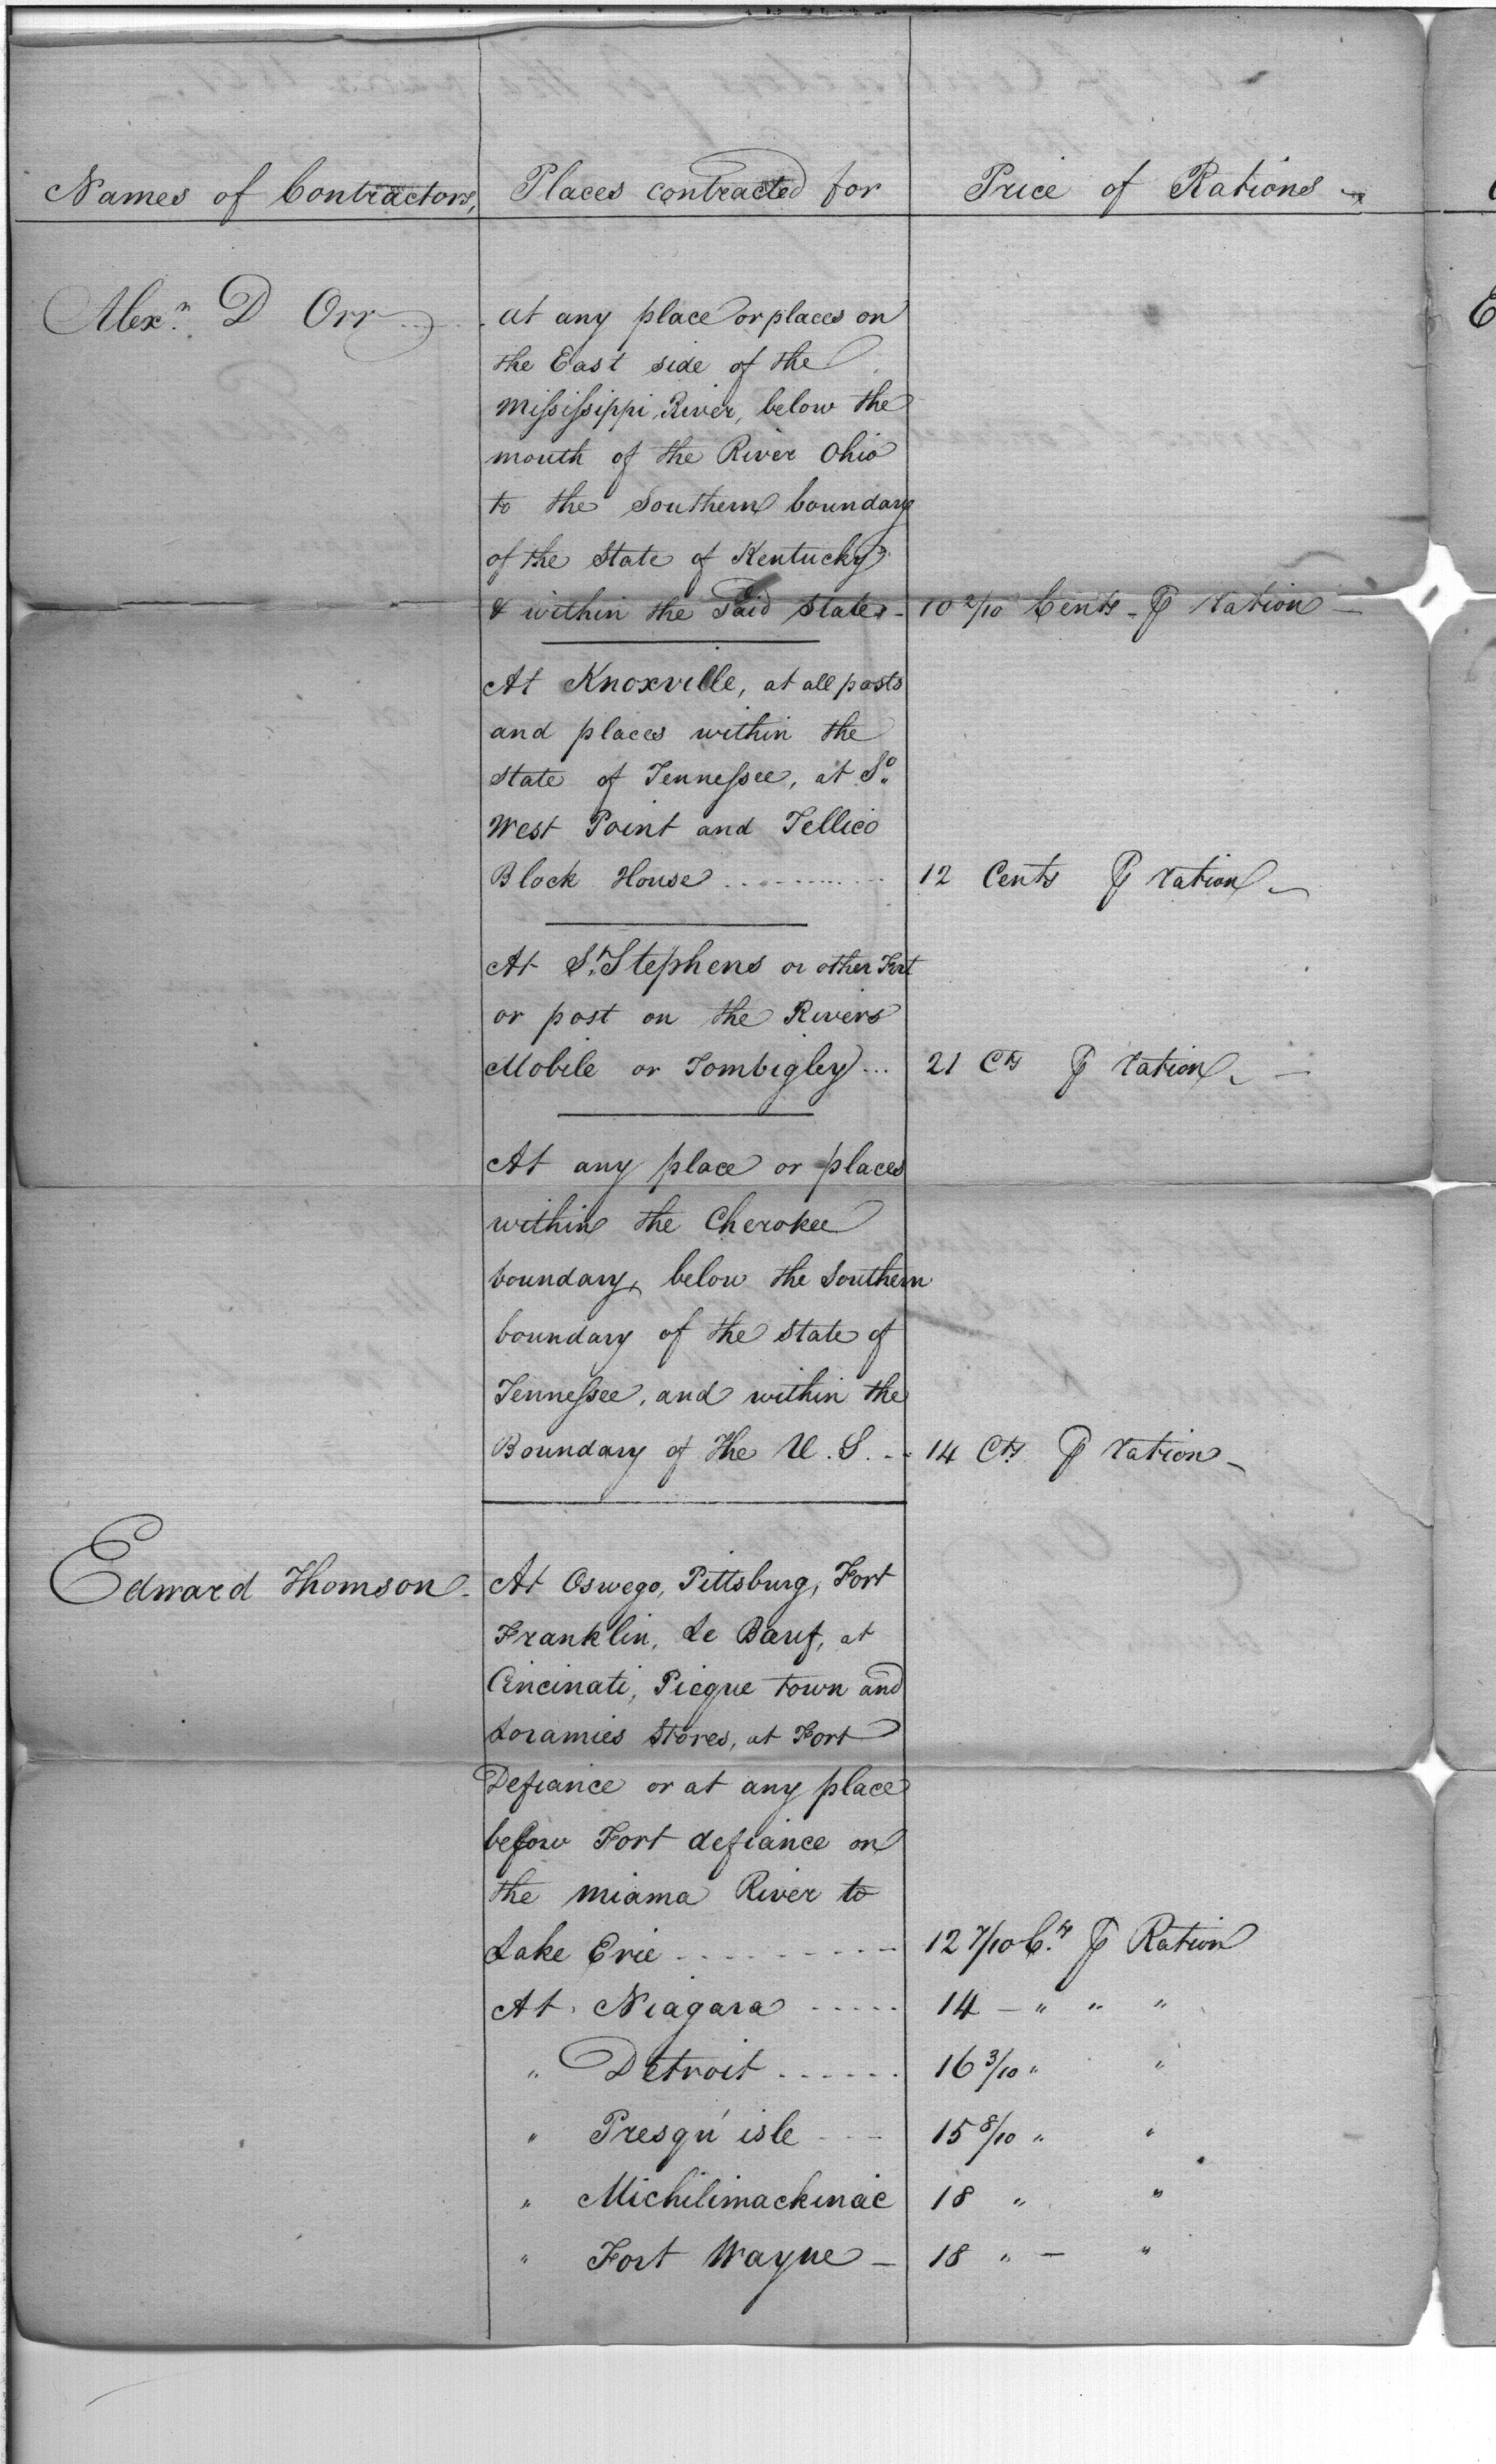 Names of Contractors, Places contracted for Price of Rations
Alexr. D Orr at any place or places on
the East side of the
Mississippi River, below the
mouth of the River Ohio
to the Southern boundary
of the State of Kentucky
& within the Said State - 10 2/10 Cents - ⅌ ration
At Knoxville, at all posts
and places within the
state of Tennessee, at So.
West Point and Tellico
Block House .......... 12 Cents ⅌ ration
At St. Stephens or other Fort
or post on the Rivers
Mobile or Tombigby ... 21 Cts ⅌ ration
At any place or places
within the Cherokee
boundary, below the Southern
boundary of the State of
Tennessee, and within the
Boundary of the U. S. - - 14 Cts. ⅌ ration -
Edward Thomson - At Oswego, Pittsburg, Fort
Franklin, Le Bœuf, at
Cincinati, Picque town and
Loramies Stores, at Fort
Defiance or at any place
below Fort defiance on
the miama River to
Lake Erie - - - - - - - - - 12 7/10 C.ts ⅌ Ration
At Niagara - - - - - 14 - " " "
" Detroit - - - - - - 16 3/10 " "
" Presqu' isle - - - 15 8/10 " "
" Michilimackinac 18 " "
" Fort Wayne - 18 " - "